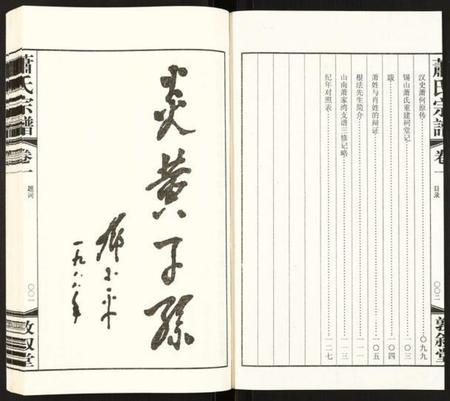 蕭氏宗譜
卷一
目录
〇〇二
敦叙堂
汉史萧何原传 〇九九
锡山萧氏重建祠堂记 一〇三
跋 一〇四
萧姓与肖姓的辩证 一〇五
根法先生简介 一一一
山南萧家湾支谱三修记略 一一三
纪年对照表 一二七
炎黄子孫
邓小平
一九八八年
蕭氏宗譜
卷一
题词
〇〇一
敦叙堂